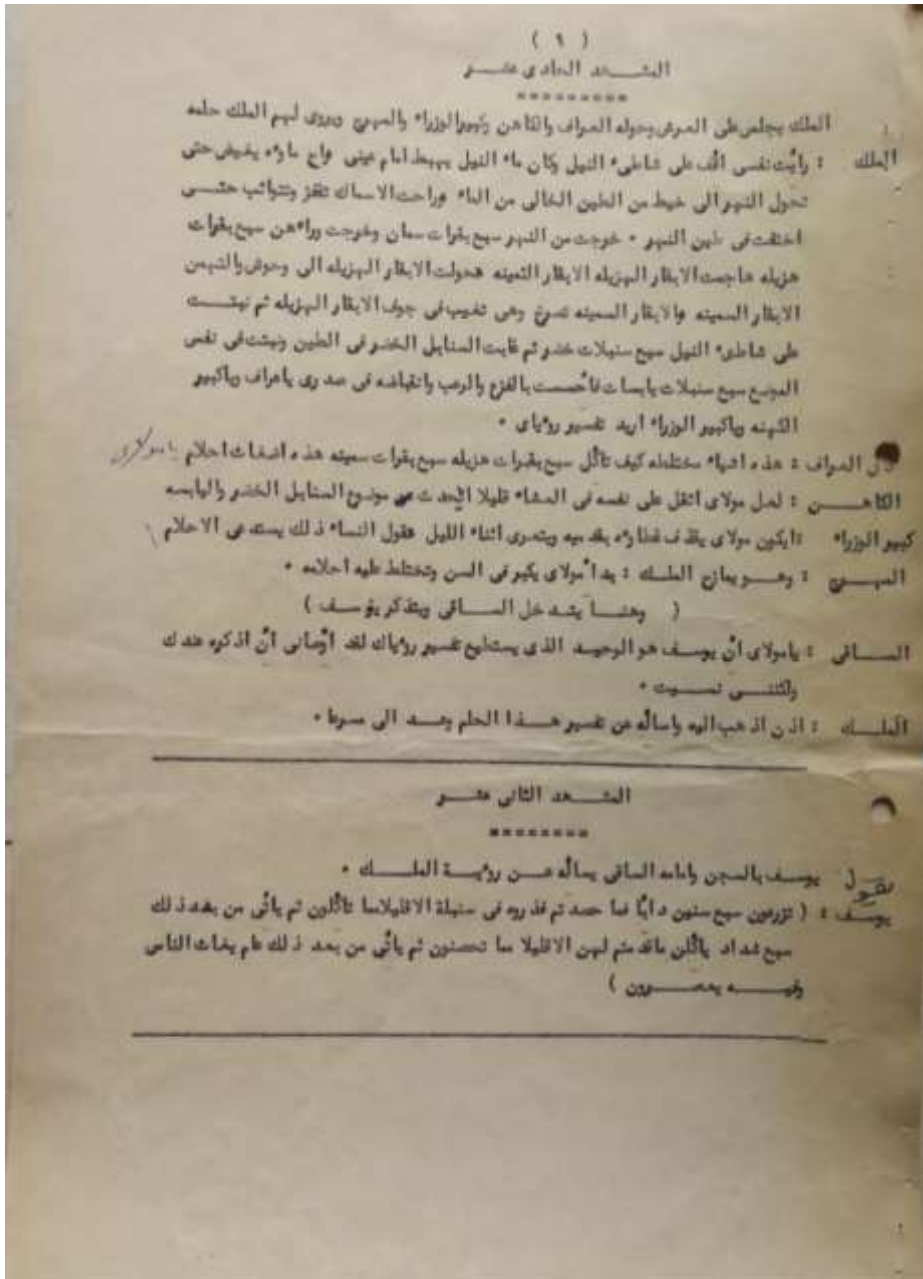 ( ٩ )
المشهد الحادى عشر
==========
الملك يجلس على العرش وحوله العراف والكاهن وكبير الوزراء والمهرج ويروى لهم الملك حلمه
الملك : رأيت نفسى اقف على شاطىء النيل وكان ماء النيل يهبط امام عينى واخ ماؤه يغيض حتى
تحول النهر الى خيط من الطين الخالى من الماء وراحت الاسماك تقفز وتتواثب حتى
اختفت فى طين النهر ٠ خرجت من النهر سبع بقرات سمان وخرجت وراءهن سبع بقرات
هزيله هاجمت الابقار الهزيله الابقار الثمينه تحولت الابقار الهزيله الى وحوش والتهمن
الابقار السمينه والابقار السمينه تصرخ وهى تغيب فى جوف الابقار الهزيله ثم نبتت
على شاطىء النيل سبع سنبلات خضر ثم غابت السنابل الخضر فى الطين ونبتت فى نفس
الموضع سبع سنبلات يابسات فأحسست بالفزع والرعب وانقباضه فى صدرى ياعراف وياكبير
الكهنه وياكبير الوزراء اريد تفسير رؤياى ٠
العراف : هذه اشياء مختلطه كيف تأكل سبع بقرات هزيله سبع بقرات سمينه هذه اضغاث احلام يامولاى
الكاهن : لعل مولاى اثقل على نفسه فى العشاء قليلا موضوع السنابل الخضر واليابسه
كبير الوزراء : ايكون مولاى يقذف غطاؤه بقدميه ويتعرى اثناء الليل فقول النساء ذلك يستدعى الاحلام
المهرج : وهو يمازح الملك : بدأ مولاى يكبر فى السن وتختلط عليه احلامه ٠
( وهنا يتدخل الساقى ويتذكر يوسف )
الساقى : يامولاى أن يوسف هو الوحيد الذى يستطيع تفسير رؤياك لقد أوصانى أن اذكره عندك
ولكننى نسيت ٠
الملك : اذن اذهب اليه واسأله عن تفسير هذا الحلم وعد الى مسرعا ٠
المشهد الثانى عشر
========
يوسف بالسجن وامامه الساقى يسأله عن رؤية الملك ٠
يقول
يوسف : ( تزرعون سبع سنين دابًا فما حصدتم فذروه فى سنبلة الاقليلامما تأكلون ثم يأتى من بعد ذلك
سبع شداد يأكلن ماقدمتم لهن الاقليلا مما تحصنون ثم يأتى من بعد ذلك عام يغاث الناس
وفيه يعصرون )